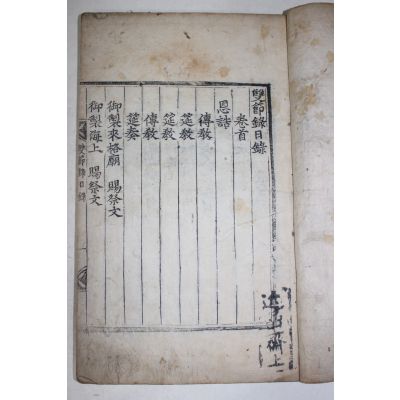 雙節錄目錄
卷首
恩誥
傳敎
筵敎
筵敎
傳敎
筵奏
御製來格廟 賜祭文
御製海上 賜祭文
雙節錄目錄
上